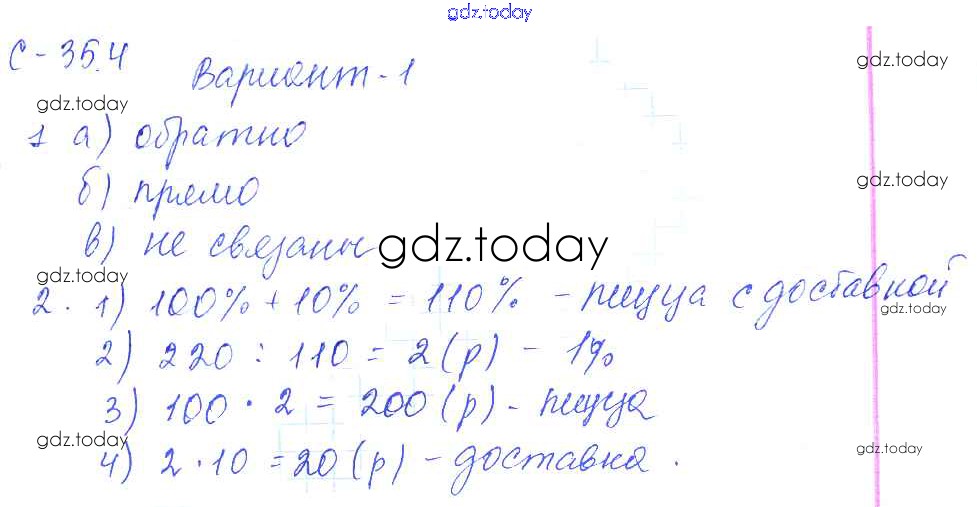 gdz.today
С-35.4
Вариант-1
gdz.today
gdz.today
1 а) обратно
б) прямо
gdz.today
в) не связаны
gdz.today
gdz.today
2. 1) 100% + 10% = 110% - пицца с доставкой
gdz.today
2) 220 : 110 = 2 (р) - 1%
3) 100 · 2 = 200 (р) - пицца
gdz.today
gdz.today
4) 2 · 10 = 20 (р) - доставка.